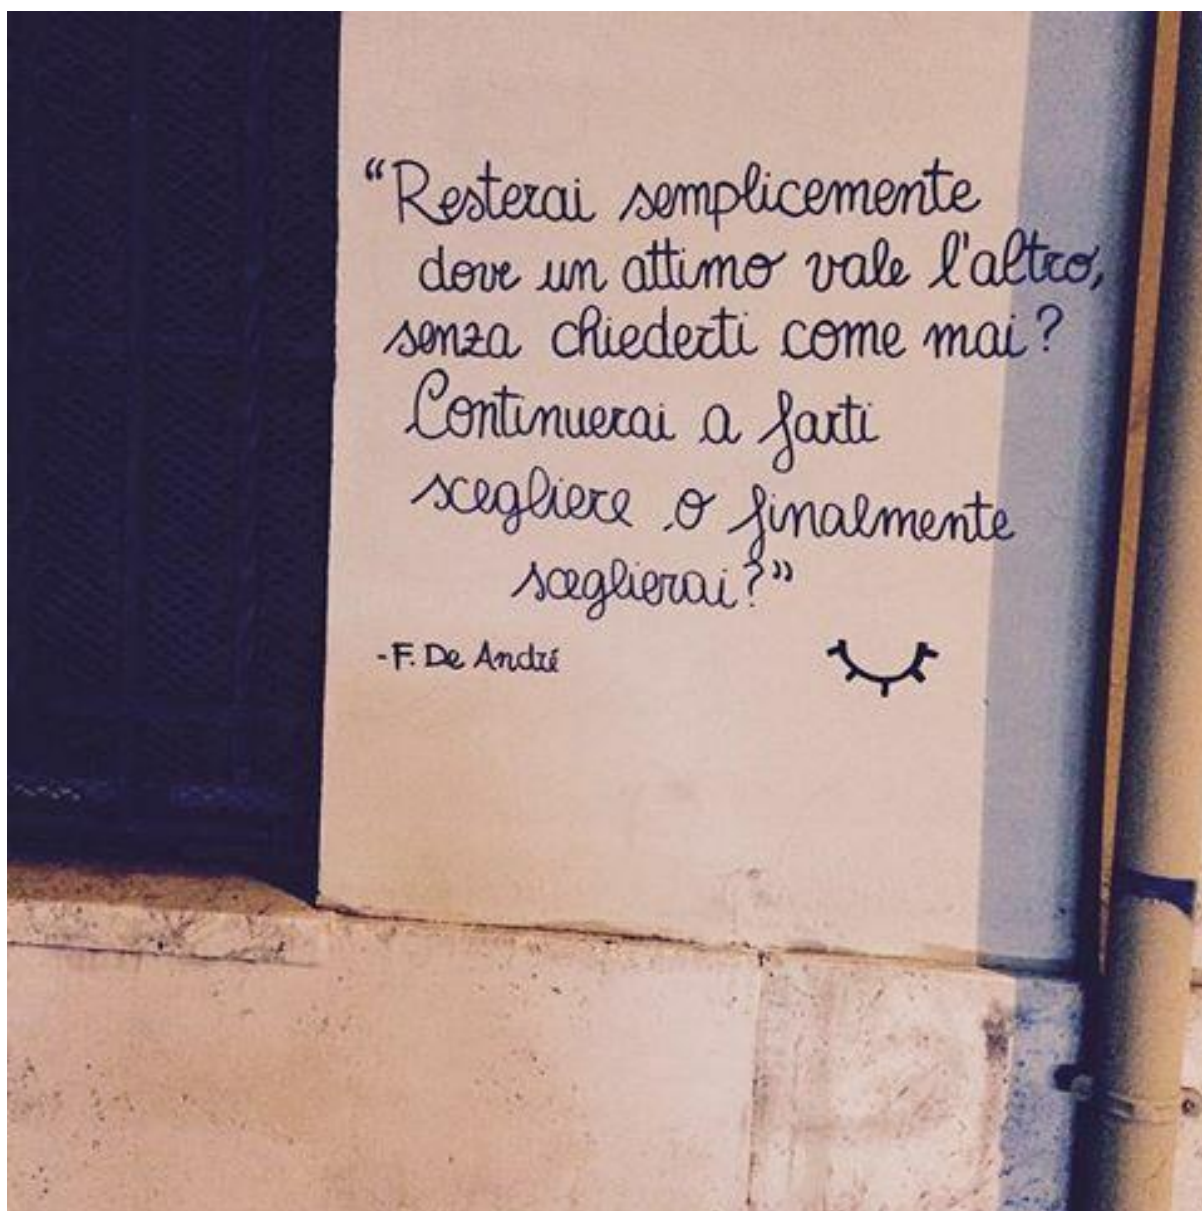 “Resterai semplicemente
dove un attimo vale l'altro,
senza chiederti come mai?
Continuerai a farti
scegliere o finalmente
sceglierai?”
-F. De André